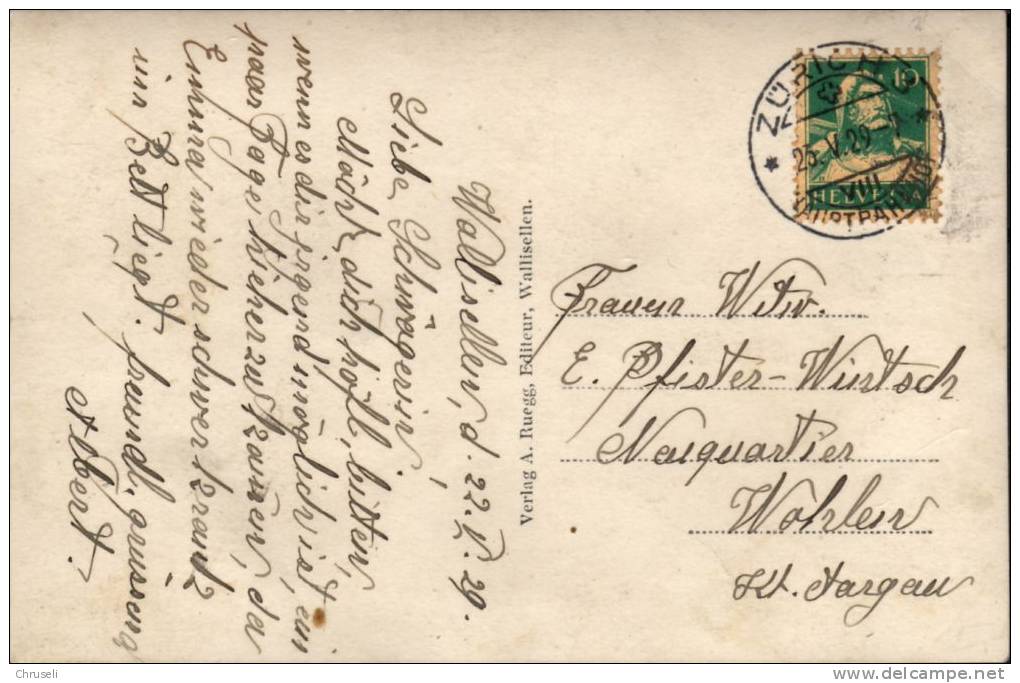 Wallisellen, d. 22. V. 29.
Liebe Schwägerin,
Möcht dich höfl. bitten,
wenn es dir irgend möglich ist ein
paar Tage hieher zu kommen, da
Emma wieder schwer krank
im Bett liegt. freundl. grüssend
Albert.
Verlag A. Ruegg, Editeur, Wallisellen.
ZÜRICH
23. V. 29
VIII
HAUPTBAHNHOF
10
HELVETIA
Frauen Witw.
E. Pfister-Würtsch
Neuquartier
Wohlen
Kt. Aargau
Chruseli
delcampe.net